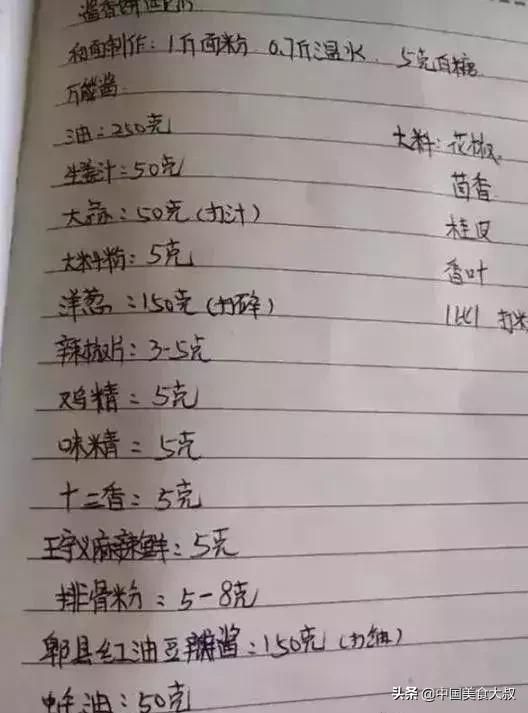 和面制作：1斤面粉 0.7斤温水、5克白糖
万能酱
油：250克
生姜汁：50克
大蒜：50克（打汁）
大料粉：5克
洋葱：150克（打碎）
辣椒片：3-5克
鸡精：5克
味精：5克
十三香：5克
王守义麻辣鲜：5克
排骨粉：5-8克
郫县红油豆瓣酱：150克（打细）
油：50克
大料：花椒
茴香
桂皮
香叶
打
头条 @中国美食大叔